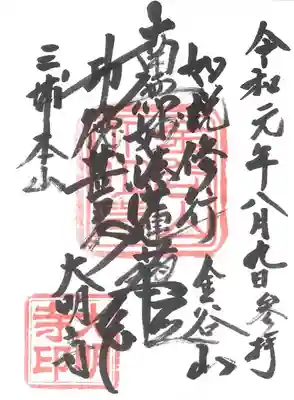 令和元年八月九日参拝
如説修行
金谷山
南無妙法蓮華経
功徳甚多
大明寺
三浦本山
大明寺印